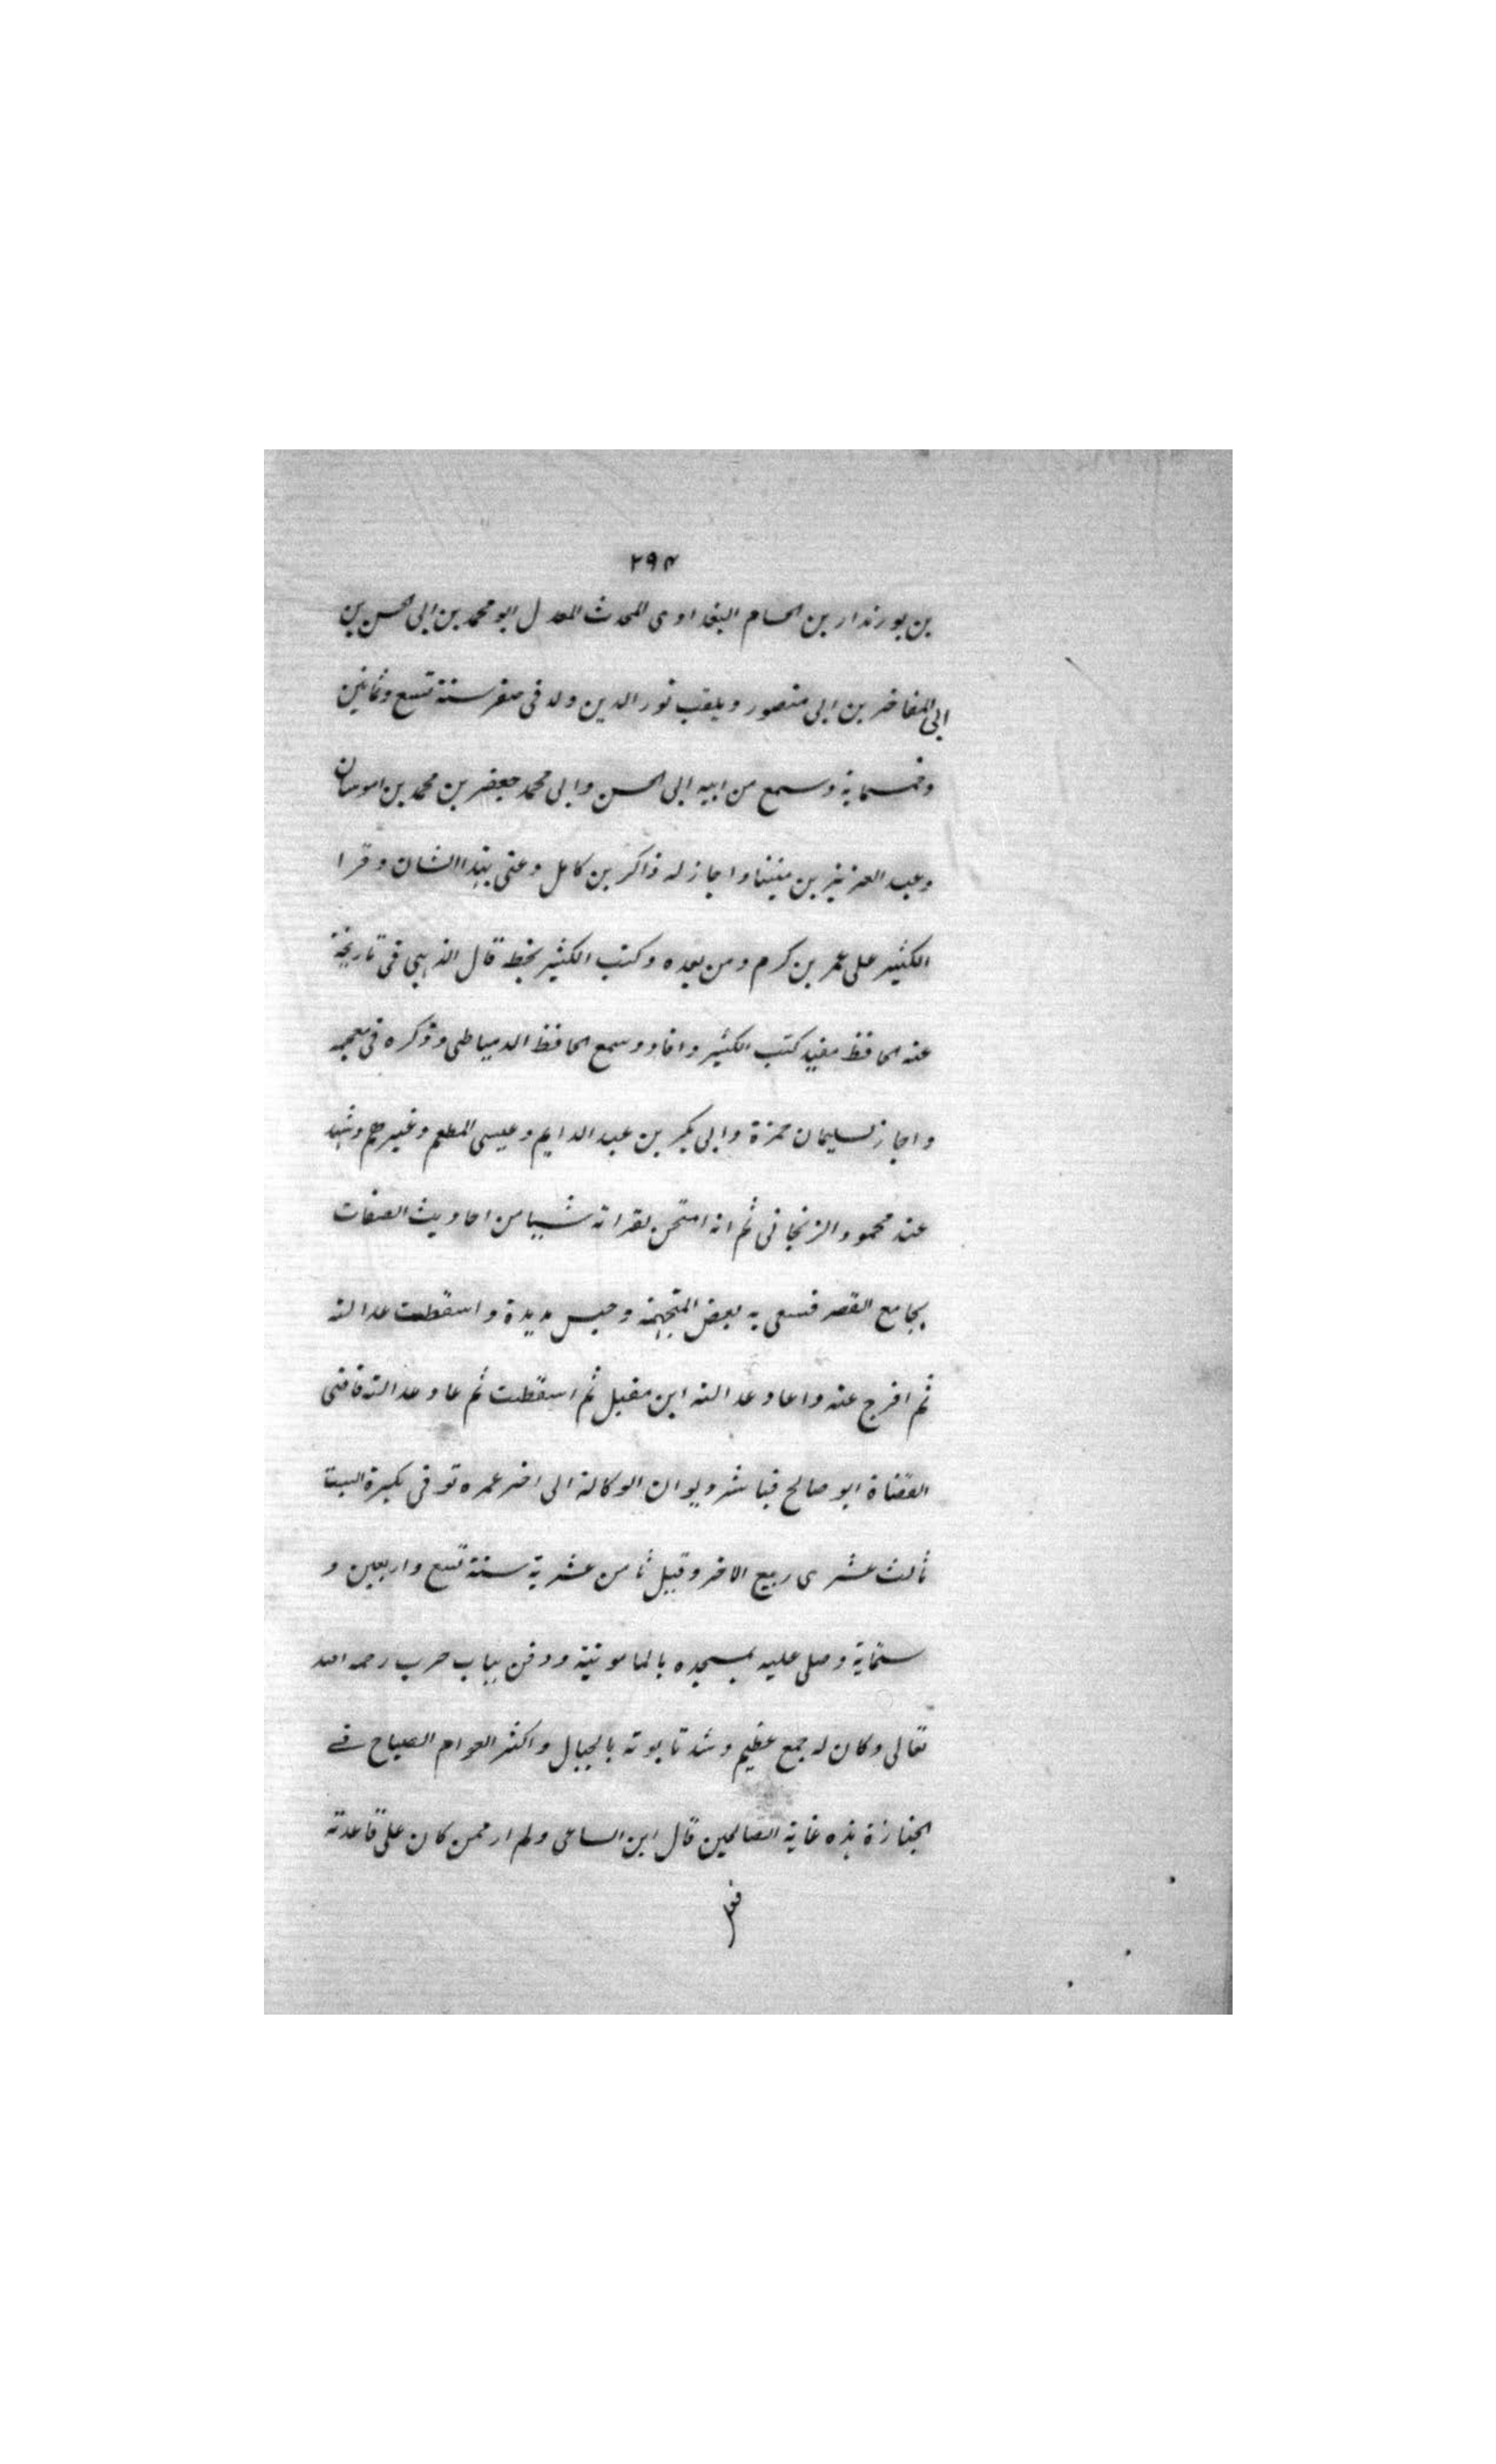 ٢٩٤
بن بورندار بن الحسام البغدادى المحدث المعدل ابو محمد بن ابى الحسن بن
ابى المفاخر بن ابى منصور ويلقب نور الدين ولد فى صفر سنة تسع وثمانين
وخمسماية وسمع من ابيه ابى الحسن وابى محمد جعفر بن محمد بن اموسان
وعبد العزيز بن منينا واجاز له ذاكر بن كامل وعنى بهذا الشان وقرا
الكثير على عمر بن كرم ومن بعده وكتب الكثير بخطه قال الذهبى فى تاريخه
عنه الحافظ مفيد كتب الكثير وافاد وسمع الحافظ الدمياطى وذكره فى معجمه
واجاز لسليمان حمزة وابى بكر بن عبد الدايم وعيسى المطعم وغيرهم وشهد
عند محمود الزنجانى ثم انه امتحن لقراته شييا من احاديث الصفات
بجامع القصر فسعى به بعض المتجهمة وحبس مديدة واسقطت عدالته
ثم افرج عنه واعاد عدالته ابن مقبل ثم اسقطت ثم عاد عدالته قاضى
القضاة ابو صالح فباشر ديوان الوكالة الى اخر عمره توفى بكيرة السبت
ثالث عشرى ربيع الاخر وقيل ثامن عشرية سنة تسع واربعين و
ستماية وصلى عليه بمسجده بالمامونية ودفن بباب حرب رحمه الله
تعالى وكان له جمع عظيم وشد تابوته بالحبال واكثر العوام الصياح فى
الجنازة هذه غاية الصالحين قال ابن الساعى ولم ار ممن كان على قاعدته